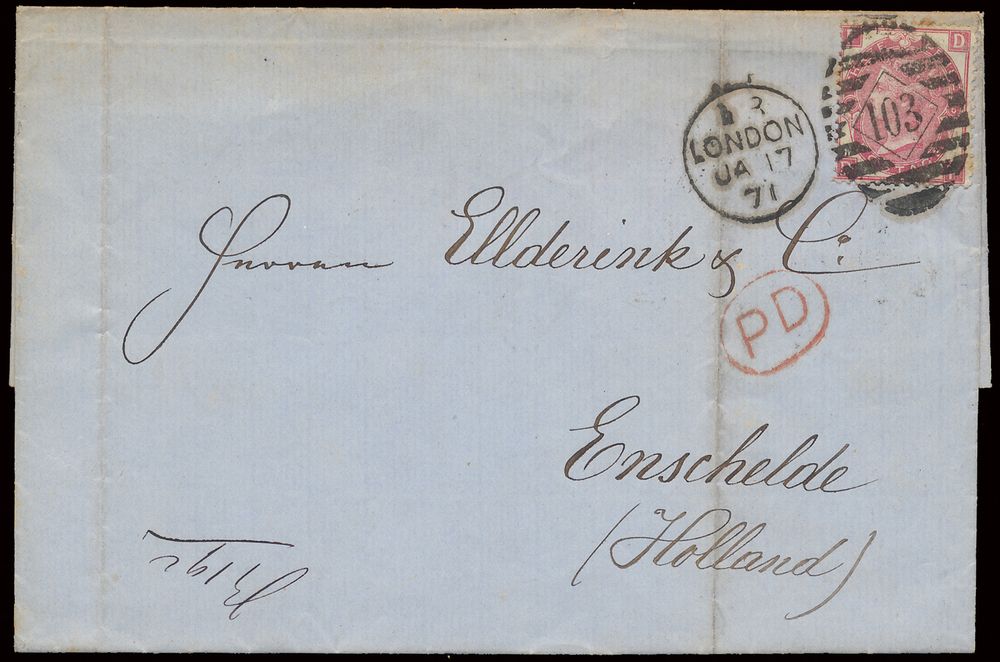 D
103
3
LONDON
JA 17
71
Herren Ellderink & Co
PD
Enschelde
(Holland)